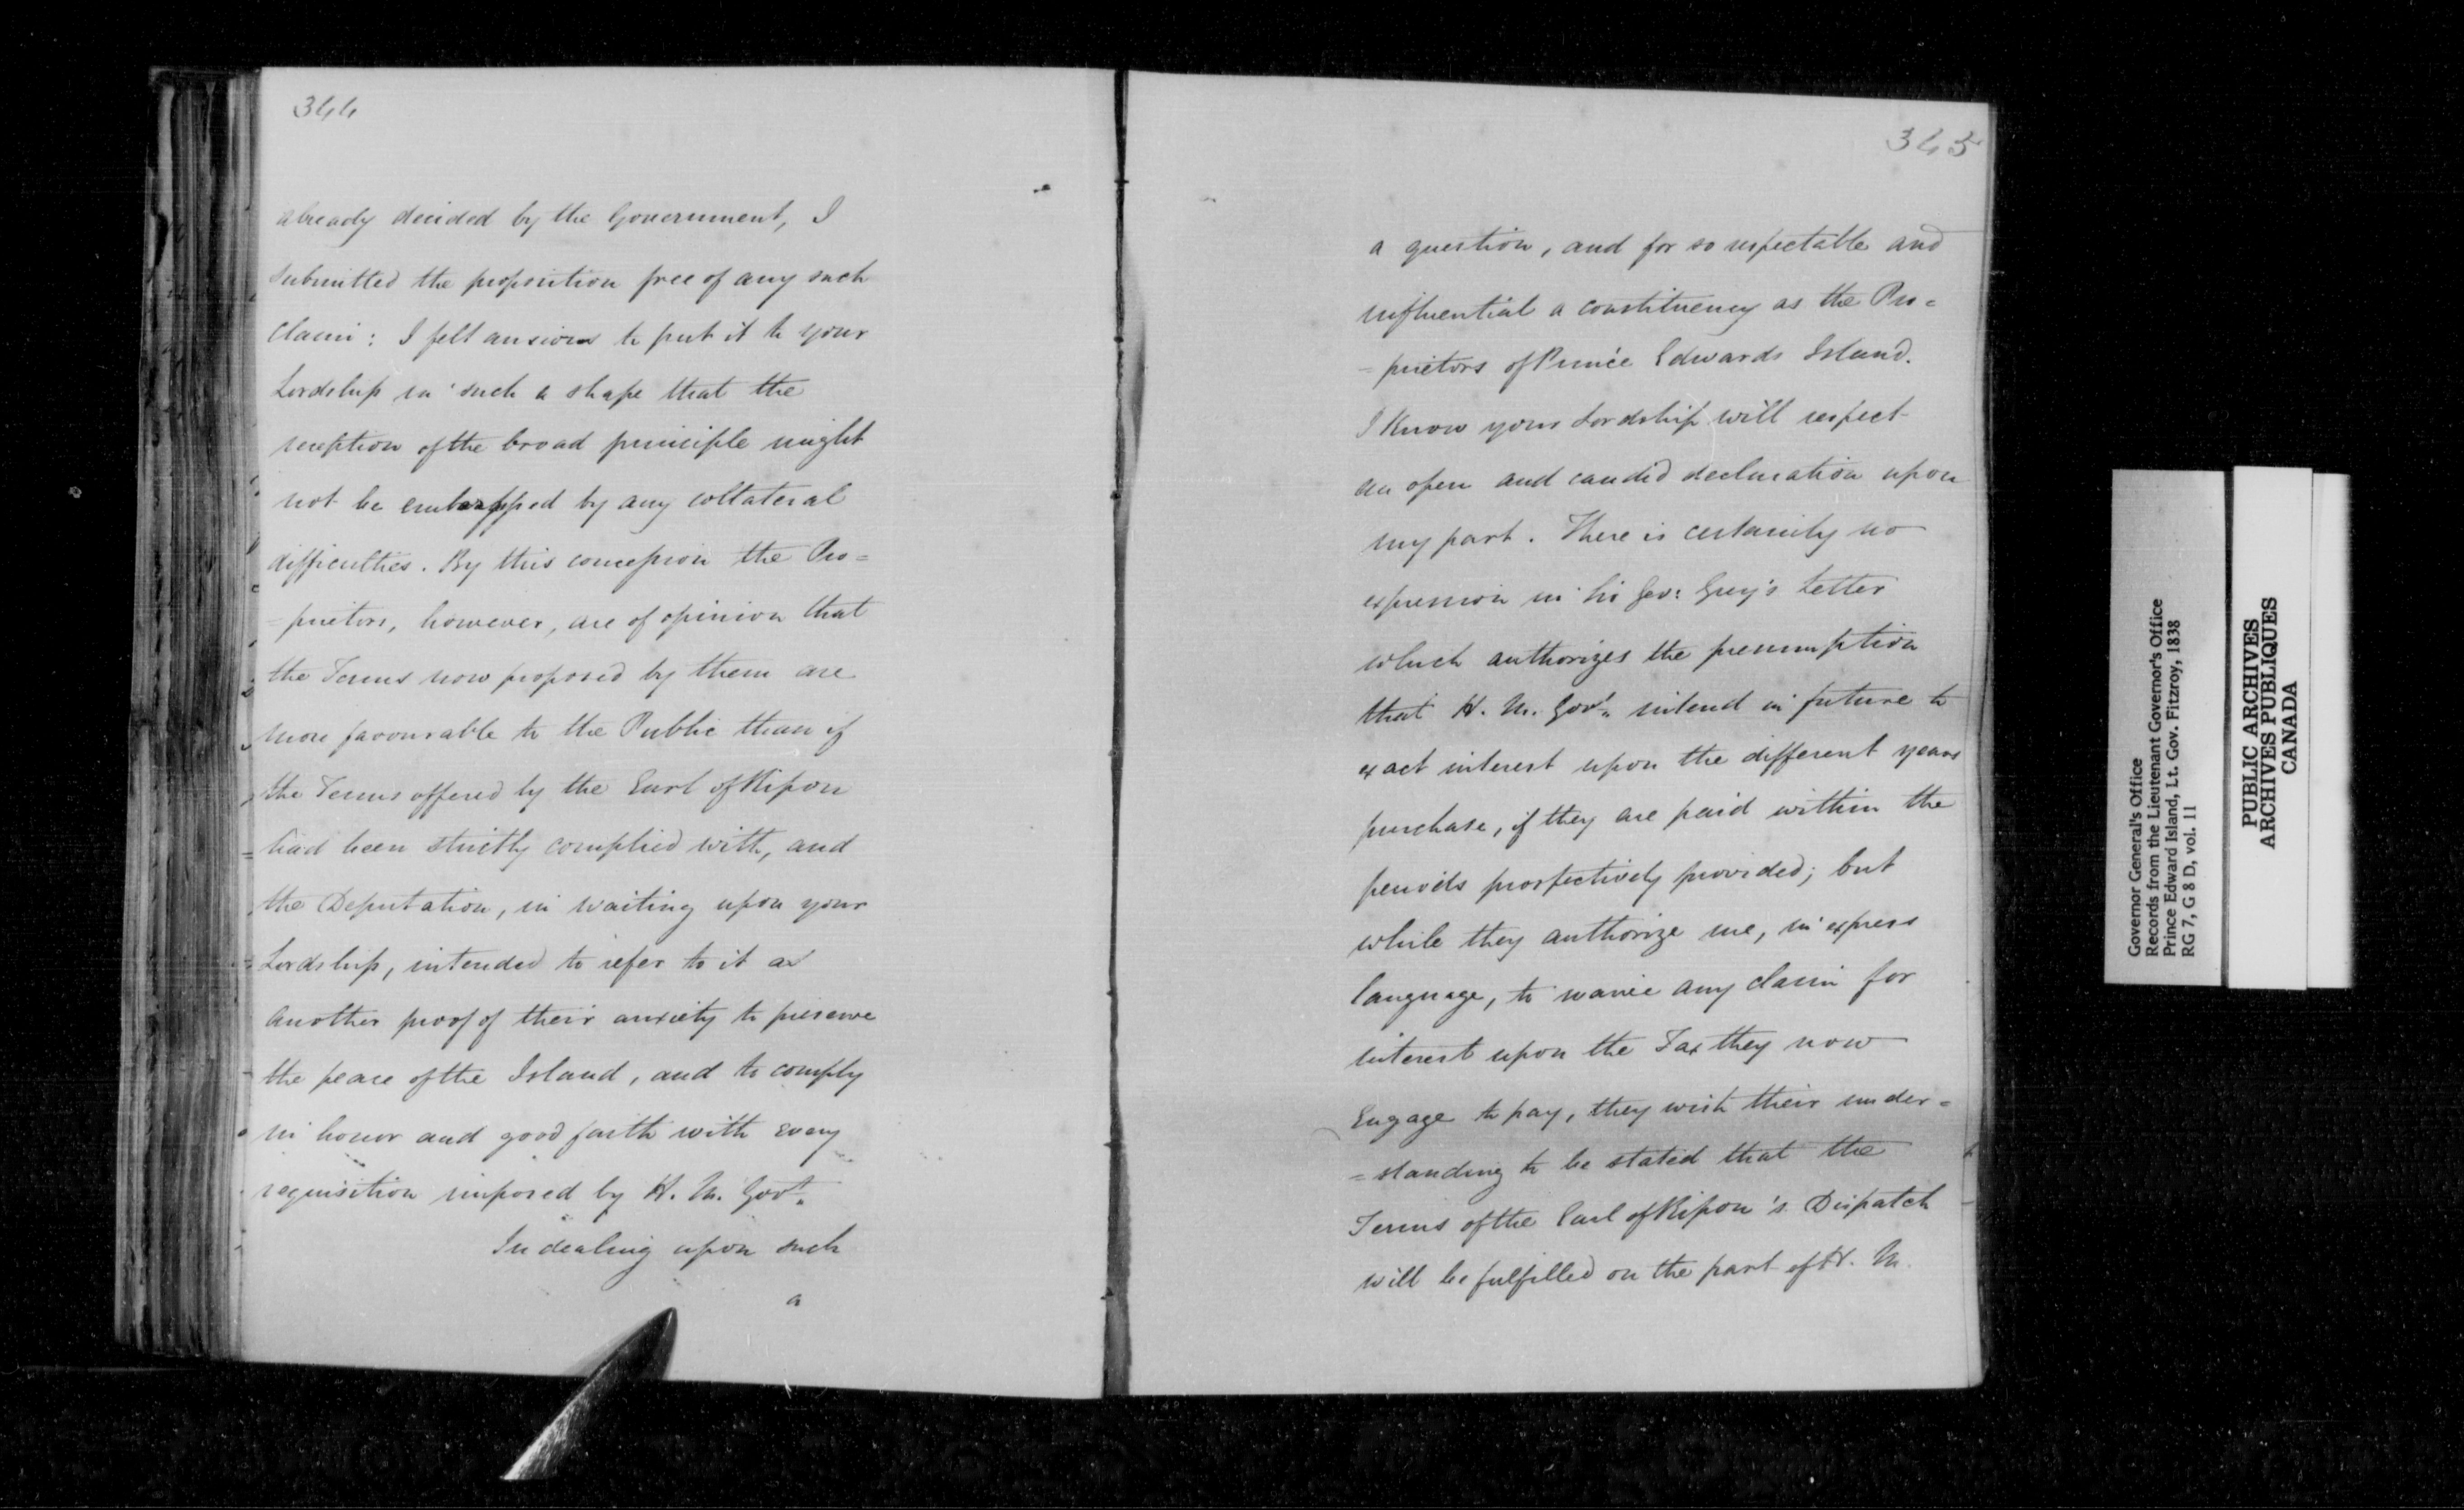 344
already decided by the Government, I
submitted the proposition free of any such
claim: I felt anxious to put it to your
Lordship in such a shape that the
reception of the broad principle might
not be embarrassed by any collateral
difficulties. By this concession the Pro=
=prietors, however, are of opinion that
the Terms now proposed by them are
more favourable to the Public than if
the Terms offered by the Earl of Ripon
had been strictly complied with, and
the Deputation, in waiting upon your
Lordship, intended to refer to it as
another proof of their anxiety to preserve
the peace of the Island, and to comply
in honor and good faith with every
requisition imposed by H. M. Govt.
In dealing upon such
a
345
a question, and for so respectable and
influential a constituency as the Pro=
=prietors of Prince Edwards Island.
I Know your Lordship will respect
an open and candid declaration upon
my part. There is certainly no
expression in Sir Geo: Grey's Letter
which authorizes the presumption
that H. M. Govt. intend in future to
exact interest upon the different years
purchase, if they are paid within the
periods prospectively provided; but
while they authorize me, in express
language, to waive any claim for
interest upon the Tax they now
Engage to pay, they wish their under=
=standing to be stated that the
Terms of the Earl of Ripon's Dispatch
will be fulfilled on the part of H. M.
Governor General's Office
Records from the Lieutenant Governor's Office
Prince Edward Island, Lt. Gov. Fitzroy, 1838
RG 7, G 8 D, vol. 11
PUBLIC ARCHIVES
ARCHIVES PUBLIQUES
CANADA